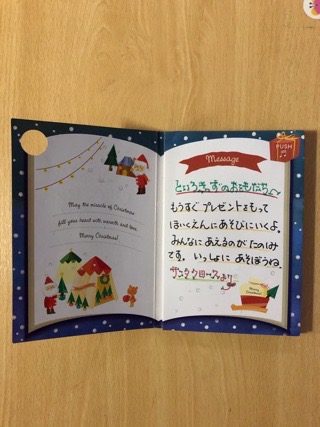 May the miracle of Christmas
fill your heart with warmth and love.
Merry Christmas!
PUSH
Message
といろきっずのおともだちへ
もうすぐプレゼントをもって
ほいくえんにあそびにいくよ。
みんなにあえるのがたのしみ
です。いっしょにあそぼうね。
サンタクロースより
Merry
Christmas!